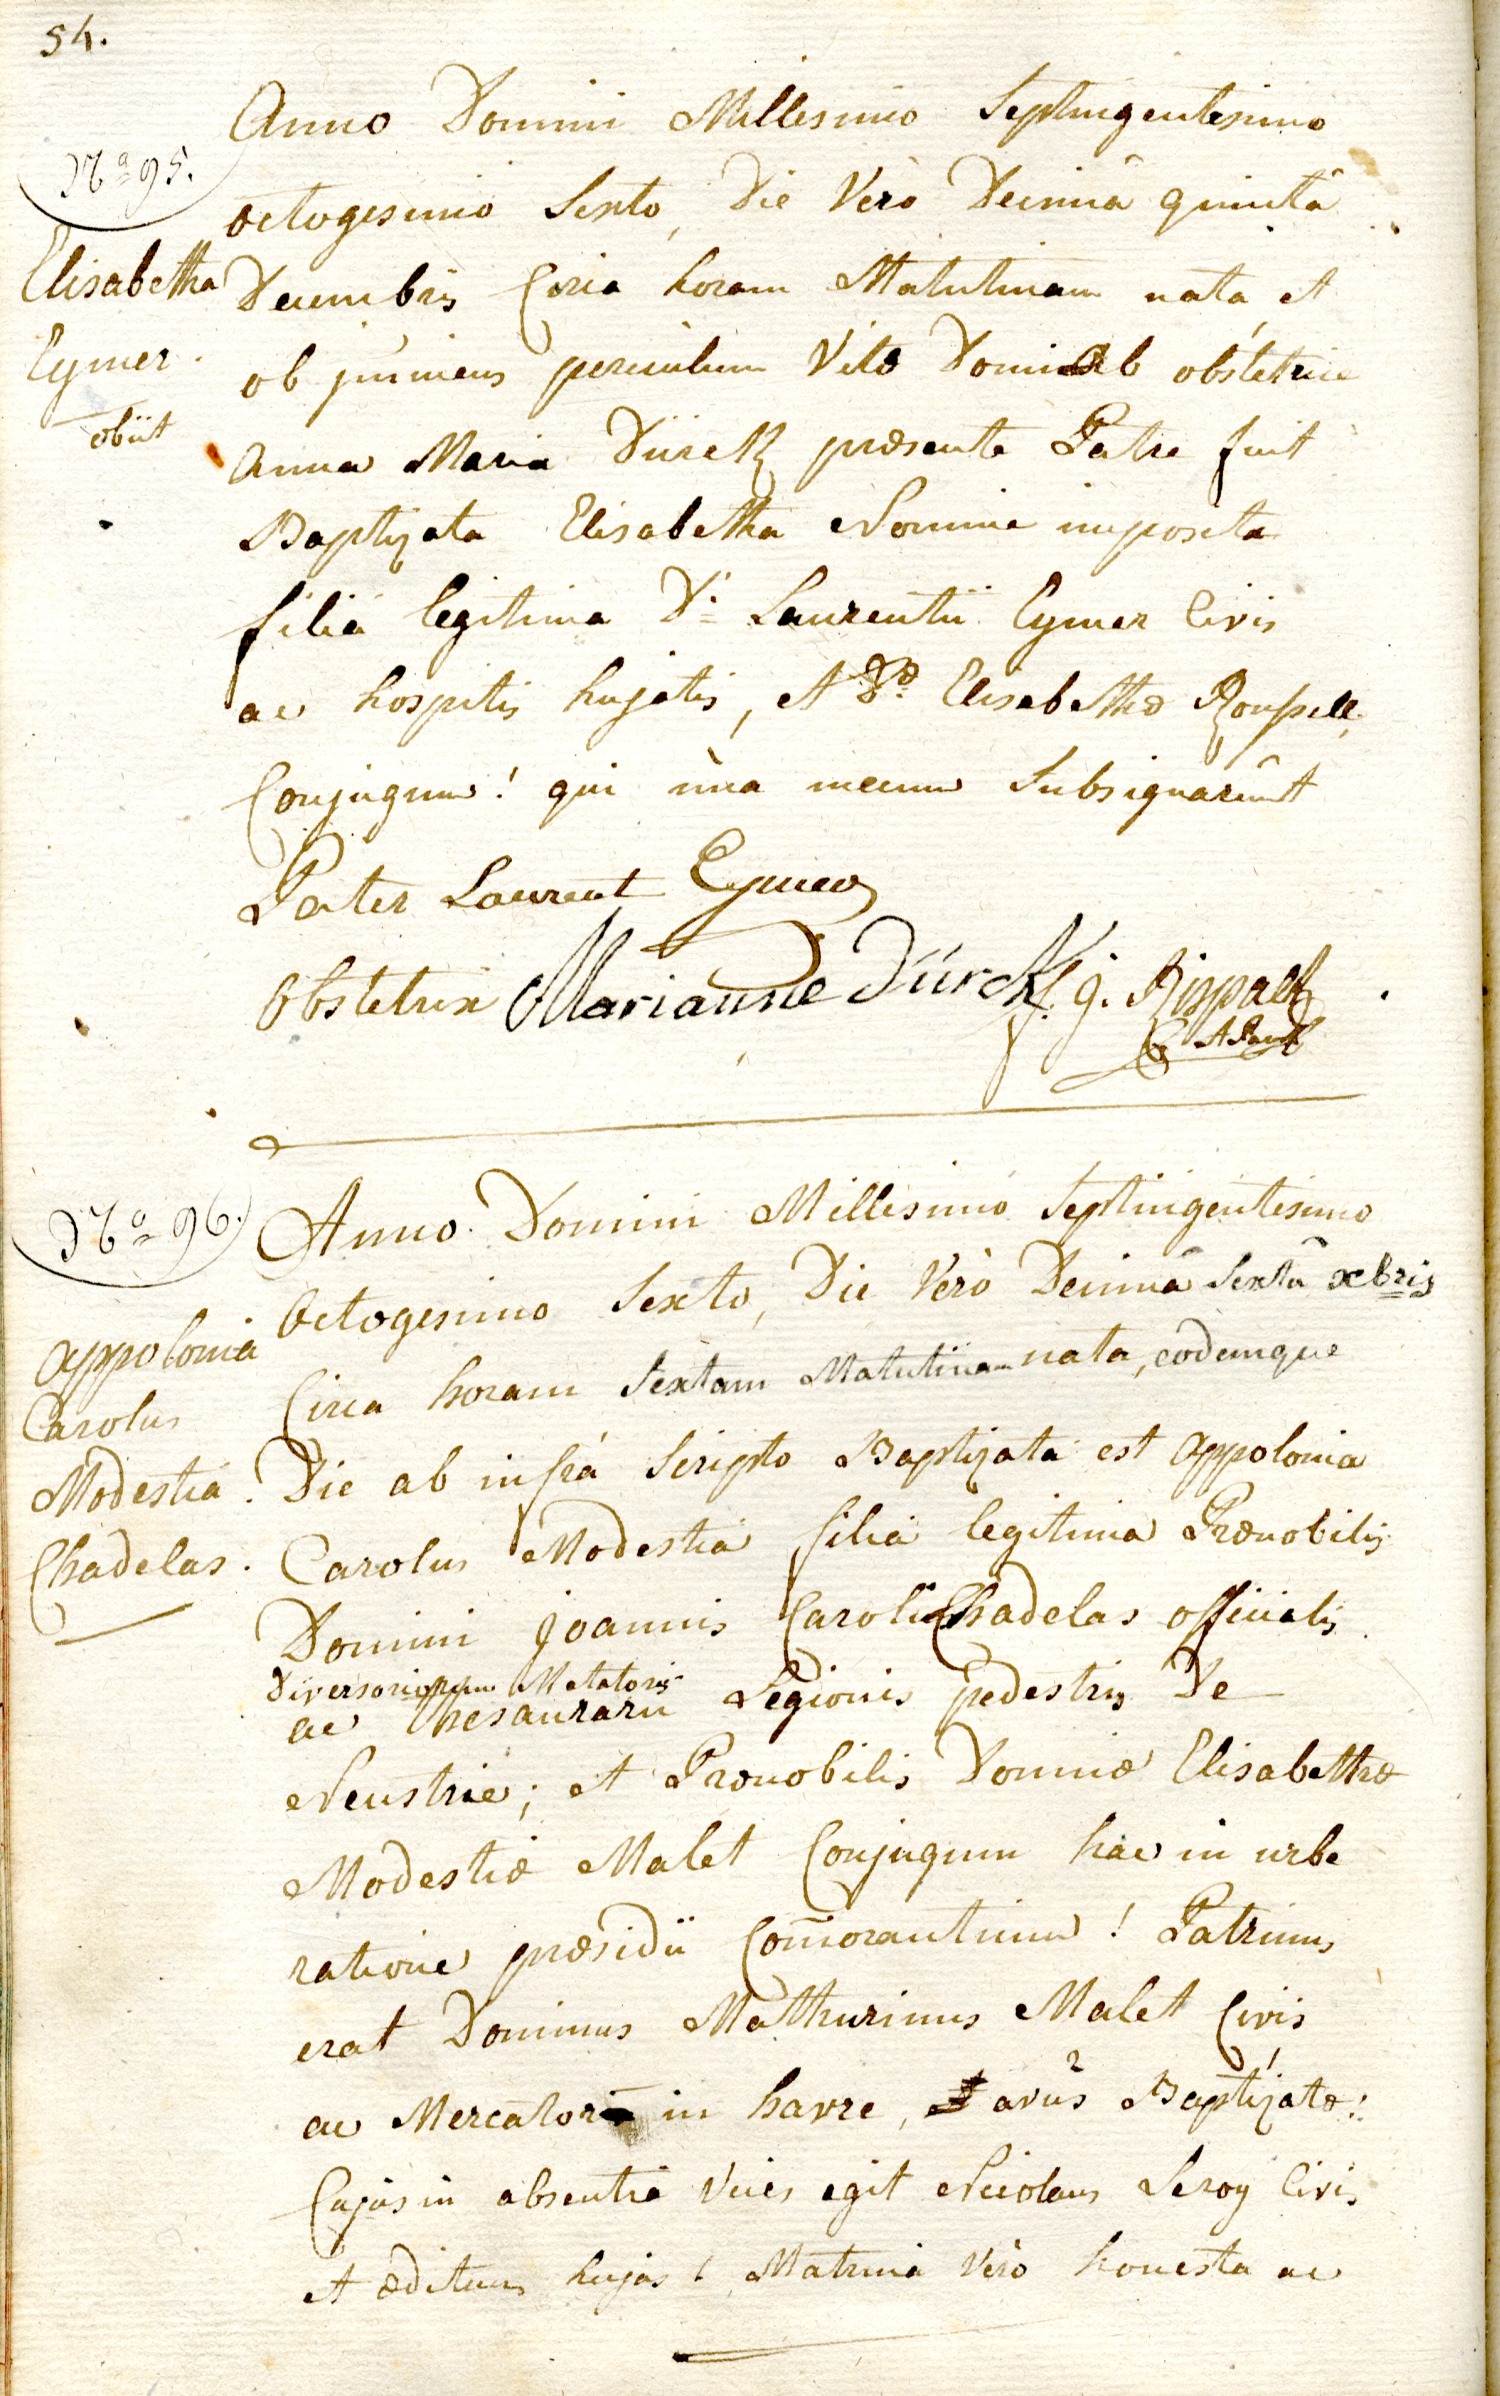 54.
Anno Domini Millesimo Septingentesimo
Nº 95.
octogesimo Sexto, Die Verò Decimâ quintâ
Elisabetha
Decembris Circa horam Matutinam nata et
Eymer.
ob iminens periculum Vitæ Domi ab obstetrice
obiit
Anna Maria Dürck præsente Patre fuit
Baptizata Elisabetha Nomine imposita
filia legitima D: Laurentii Eymer Civis
ac hospitis hujatis, et Dæ Elisabethæ Roussell,
Conjugum! qui unà mecum Subsignarûnt
Pater Laurent Eymer
Obstetrix Marianne Dürck f. g. Rispach
Nº 96.
Anno Domini Millesimo Septingentesimo
Octogesimo Sexto, Die Verò Decimâ Sextâ xbris
Appolonia
Circa horam Sextam Matutinam nata, eodemque
Carolus
Die ab infrá Scripto Baptizata est Appolonia
Modestia.
Carolus Modestia filia legitima Prænobilis
Chadelas.
Domini Joannis Caroli Chadelas officialis
Diversoriorum Metatoris
ac Thesaurarii Legionis pedestris De
Neustrie; et Prænobilis Dominæ Elisabethæ
Modestiæ Malet Conjugum hac in urbe
ratione præsidii Com̃orantium! Patrinus
erat Dominus Mathurinus Malet Civis
ac Mercator in havre, avus Baptizatæ!
Cujus in absentia Vices egit Nicolaus Leroy Civis
et ædituus hujas! Matrina Verò honesta ac